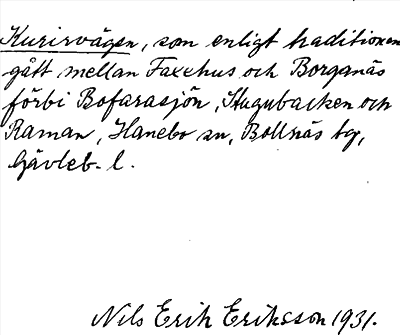 Kurirvägen, som enligt traditionen
gått mellan Faxehus och Borganäs
förbi Bofarasjön, Stugubacken och
Raman, Hanebo sn, Bollnäs tg,
Gävleb. l.
Nils Erik Eriksson 1931.